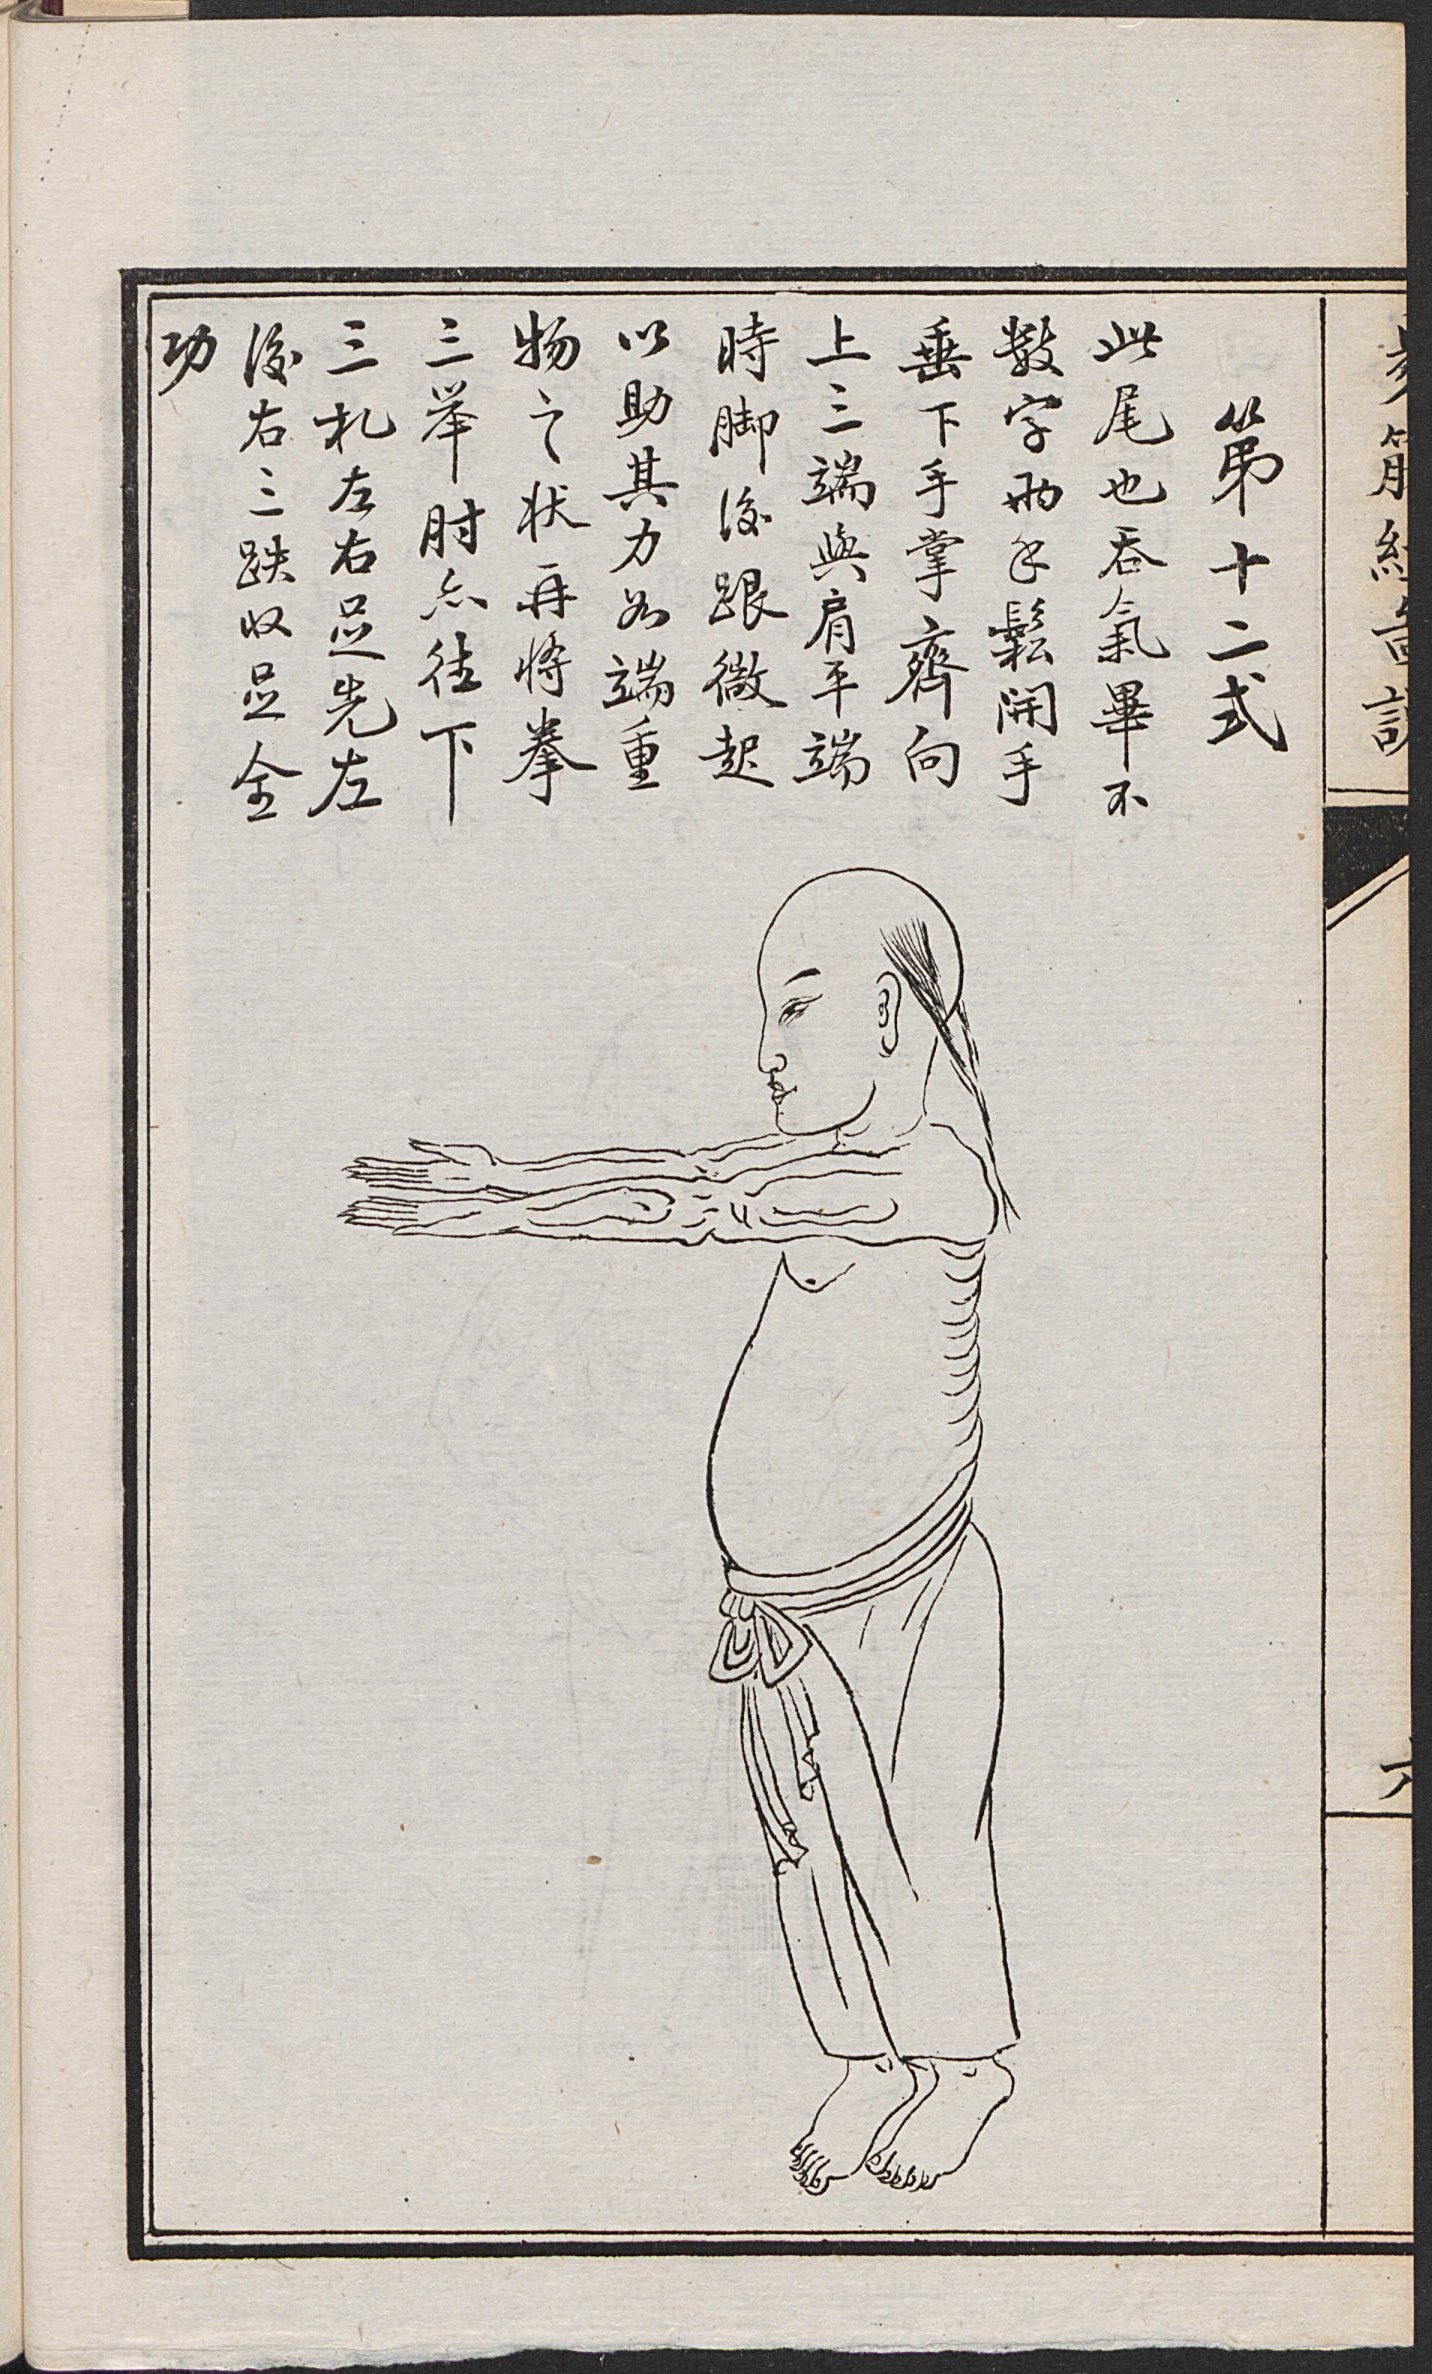 第十二式
此尾也吞氣畢不
數字兩手鬆開手
垂下手掌齊向
上三端與肩平端
時脚後跟微起
以助其力如端重
物之状再將拳
三举肘亦往下
三札左右足先左
後右三跌收足全
功
易筋經
六